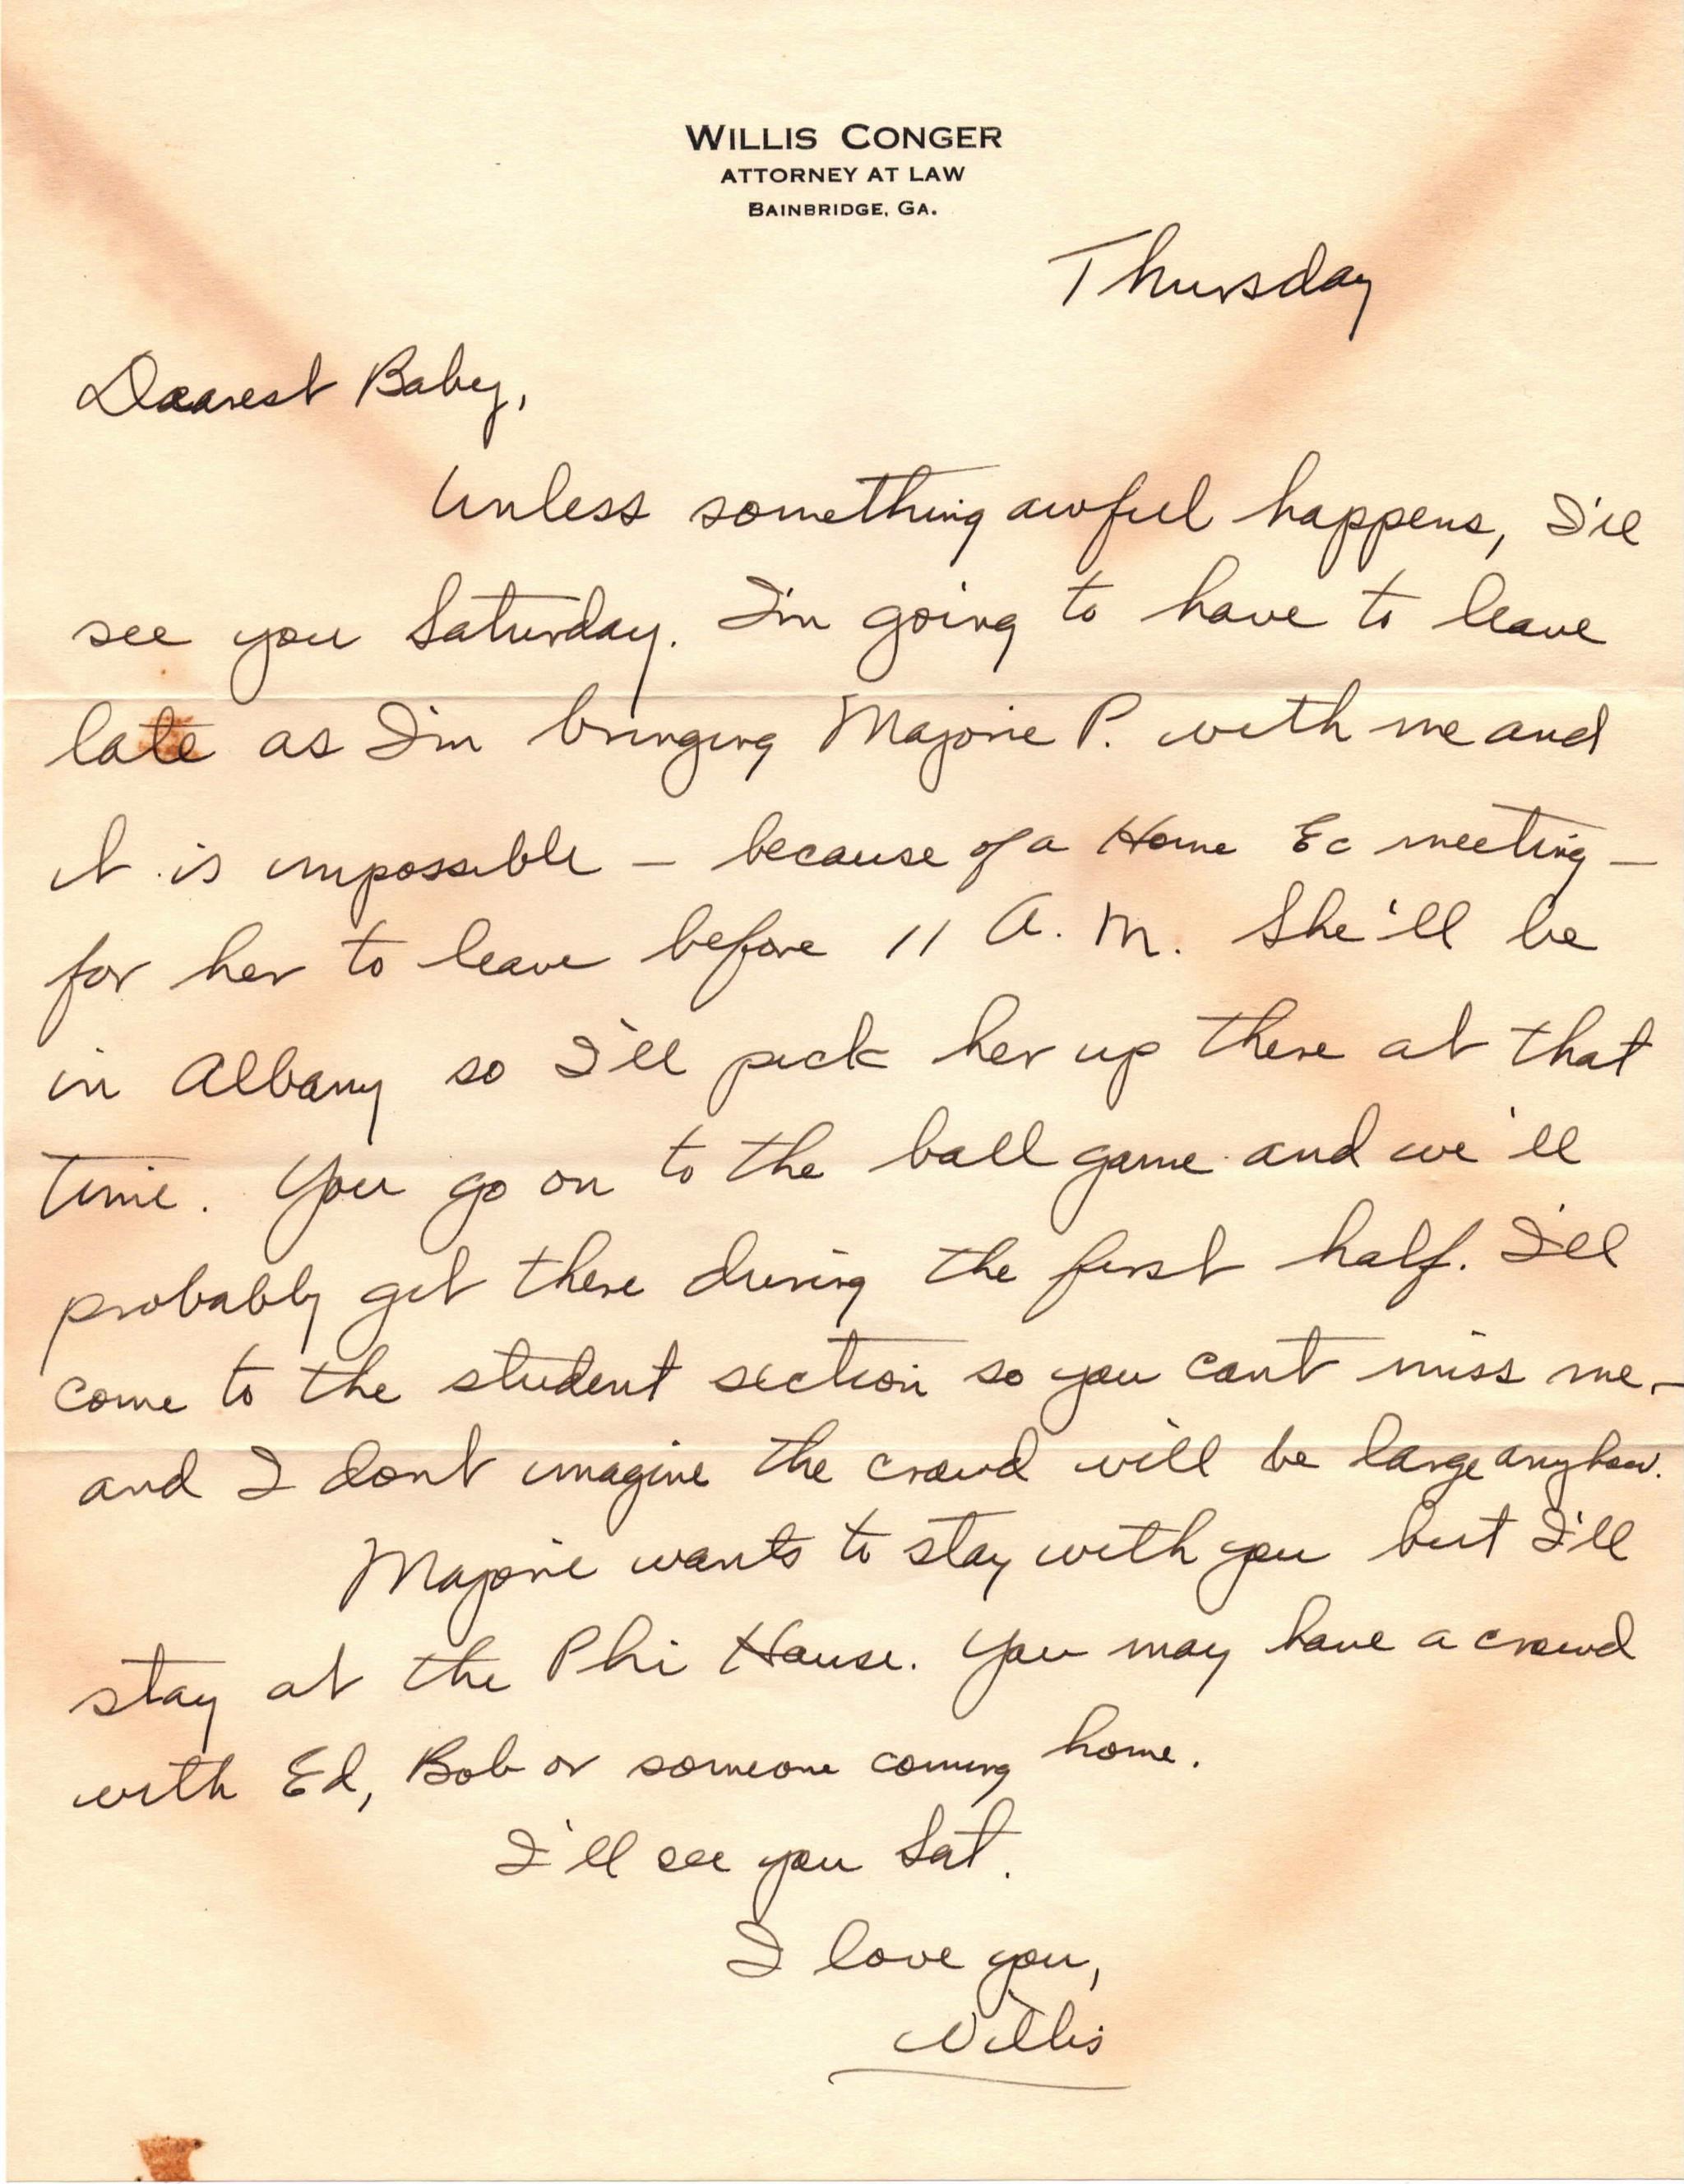 WILLIS CONGER
ATTORNEY AT LAW
BAINBRIDGE, GA.
Thursday
Dearest Baby,
Unless something awful happens, I'll
see you Saturday. I'm going to have to leave
late as I'm bringing Majorie P. with me and
it is impossible – because of a Home Ec meeting –
for her to leave before 11 A. M. She'll be
in Albany so I'll pick her up there at that
time. You go on to the ball game and we'll
probably get there during the first half. I'll
come to the student section so you cant miss me –
and I dont imagine the crowd will be large anyhow.
Majorie wants to stay with you but I'll
stay at the Phi House. You may have a crowd
with Ed, Bob or someone coming home.
I'll see you Sat.
I love you,
Willis